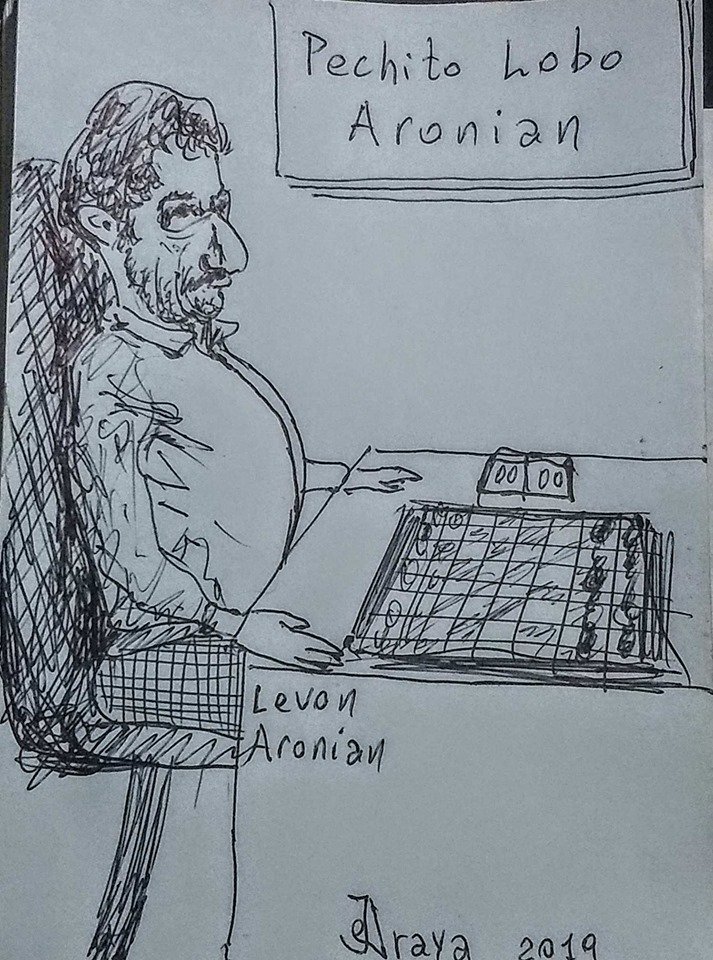 Pechito Lobo
Aronian
00 00
Levon
Aronian
Araya 2019